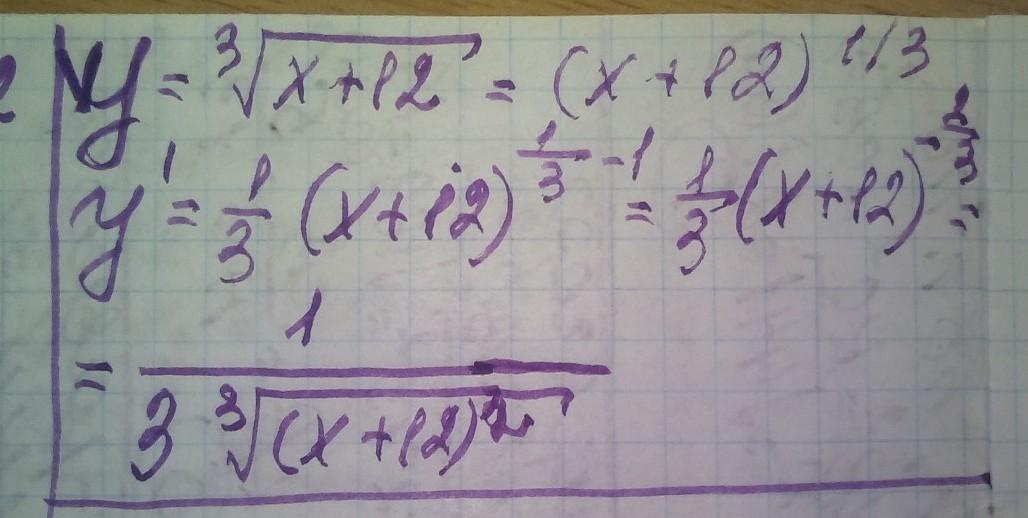 y = ∛(x+12) = (x+12)^1/3
y' = 1/3 (x+12)^(1/3 - 1) = 1/3 (x+12)^(-2/3) =
= 1 / (3 ∛((x+12)^2))